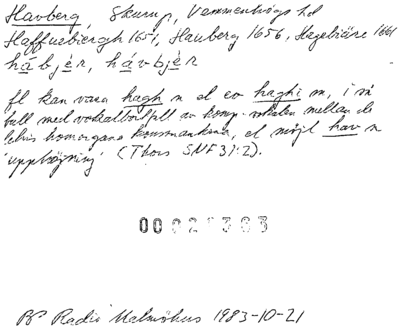 Havberg, Skurup, Vemmenhögs hd
Haffuebiergh 1651, Hauberg 1656, Hagebiäre 1661
hábjèr, hávbjèr
fl kan vara hagh n el ev haghi m, i så
fall med vokalbortfall av komp.-vokalen mellan de
delvis homorgana konsonanterna, el möjl hav n
'upphöjning' (Thors SNF 31:2).
00021363
BP Radio Malmöhus 1983-10-21